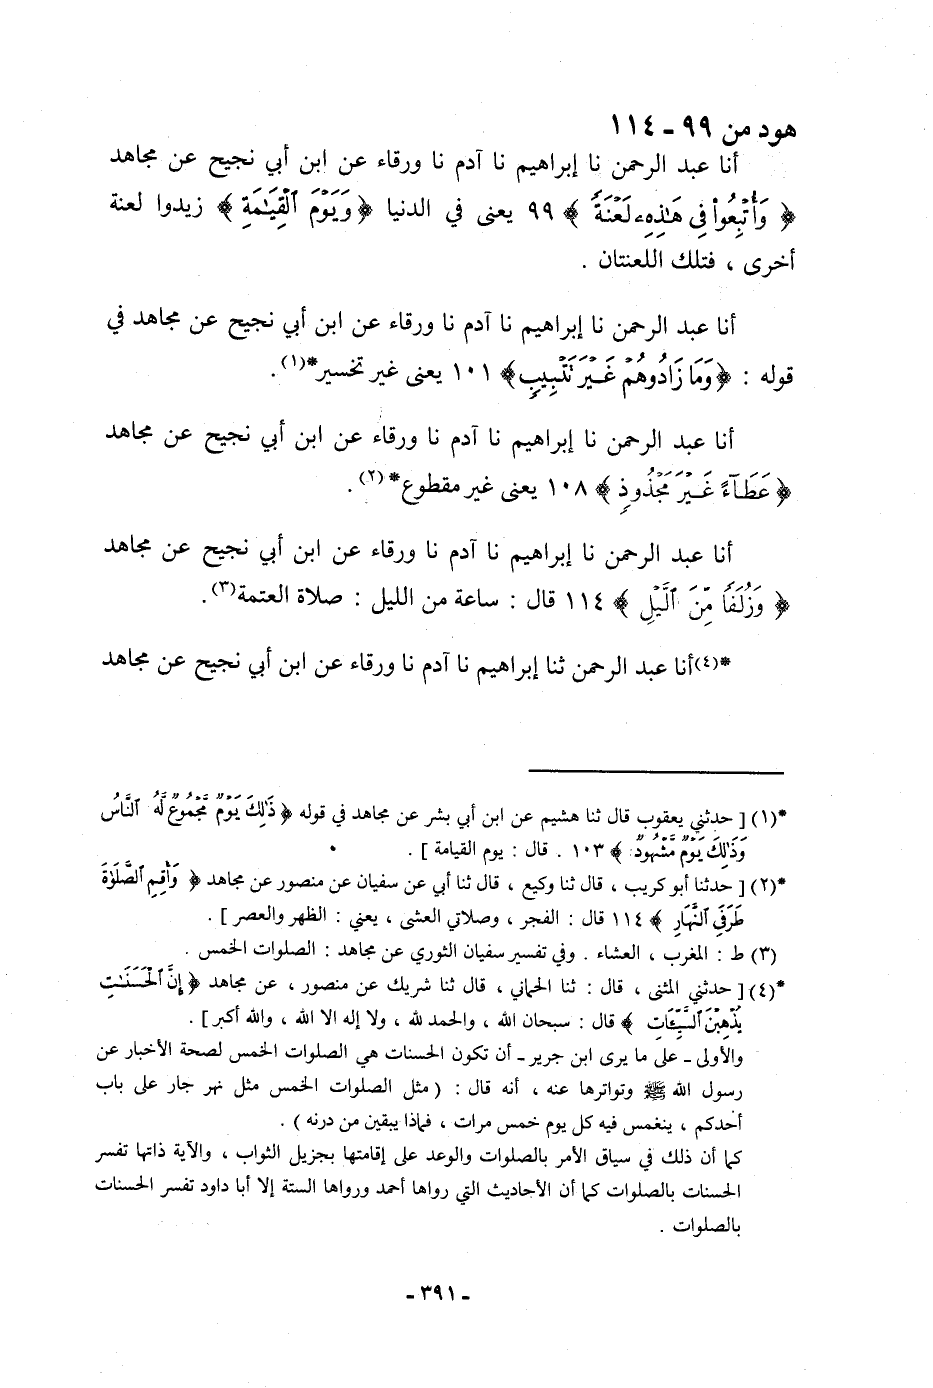 هود من ٩٩ ـ ١١٤
أنا عبد الرحمن نا إبراهيم نا آدم نا ورقاء عن ابن أبي نجيح عن مجاهد
﴿ وَأُتْبِعُوا۟ فِى هَـٰذِهِۦ لَعْنَةً ﴾ ٩٩ يعنى في الدنيا ﴿ وَيَوْمَ ٱلْقِيَـٰمَةِ ﴾ زيدوا لعنة
أخرى ، فتلك اللعنتان .
أنا عبد الرحمن نا إبراهيم نا آدم نا ورقاء عن ابن أبي نجيح عن مجاهد في
قوله : ﴿ وَمَا زَادُوهُمْ غَيْرَ تَتْبِيبٍ ﴾ ١٠١ يعنى غير تخسير*(١).
أنا عبد الرحمن نا إبراهيم نا آدم نا ورقاء عن ابن أبي نجيح عن مجاهد
﴿ عَطَآءً غَيْرَ مَجْذُوذٍ ﴾ ١٠٨ يعنى غير مقطوع*(٢).
أنا عبد الرحمن نا إبراهيم نا آدم نا ورقاء عن ابن أبي نجيح عن مجاهد
﴿ وَزُلَفًا مِّنَ ٱلَّيْلِ ﴾ ١١٤ قال : ساعة من الليل : صلاة العتمة(٣).
*(٤)أنا عبد الرحمن ثنا إبراهيم نا آدم نا ورقاء عن ابن أبي نجيح عن مجاهد
*(١) [ حدثني يعقوب قال ثنا هشيم عن ابن أبي بشر عن مجاهد في قوله ﴿ ذَٰلِكَ يَوْمٌ مَّجْمُوعٌ لَّهُ ٱلنَّاسُ
وَذَٰلِكَ يَوْمٌ مَّشْهُودٌ ﴾ ١٠٣ . قال : يوم القيامة ] .
*(٢) [ حدثنا أبو كريب ، قال ثنا وكيع ، قال ثنا أبي عن سفيان عن منصور عن مجاهد ﴿ وَأَقِمِ ٱلصَّلَوٰةَ
طَرَفَىِ ٱلنَّهَارِ ﴾ ١١٤ قال : الفجر ، وصلاتي العشى ، يعني : الظهر والعصر ] .
(٣) ط : المغرب ، العشاء . وفي تفسير سفيان الثوري عن مجاهد : الصلوات الخمس .
*(٤) [ حدثني المثنى ، قال : ثنا الحماني ، قال ثنا شريك عن منصور ، عن مجاهد ﴿ إِنَّ ٱلْحَسَنَـٰتِ
يُذْهِبْنَ ٱلسَّيِّـَٔاتِ ﴾ قال : سبحان الله ، والحمد لله ، ولا إله الا الله ، والله أكبر ] .
والأولى ـ على ما يرى ابن جرير ـ أن تكون الحسنات هي الصلوات الخمس لصحة الأخبار عن
رسول الله ﷺ وتواترها عنه ، أنه قال : ( مثل الصلوات الخمس مثل نهر جار على باب
أحدكم ، ينغمس فيه كل يوم خمس مرات ، فماذا يبقين من درنه ) .
كما أن ذلك في سياق الأمر بالصلوات والوعد على إقامتها بجزيل الثواب ، والآية ذاتها تفسر
الحسنات بالصلوات كما أن الأحاديث التي رواها أحمد ورواها الستة إلا أبا داود تفسر الحسنات
بالصلوات .
ـ ٣٩١ ـ